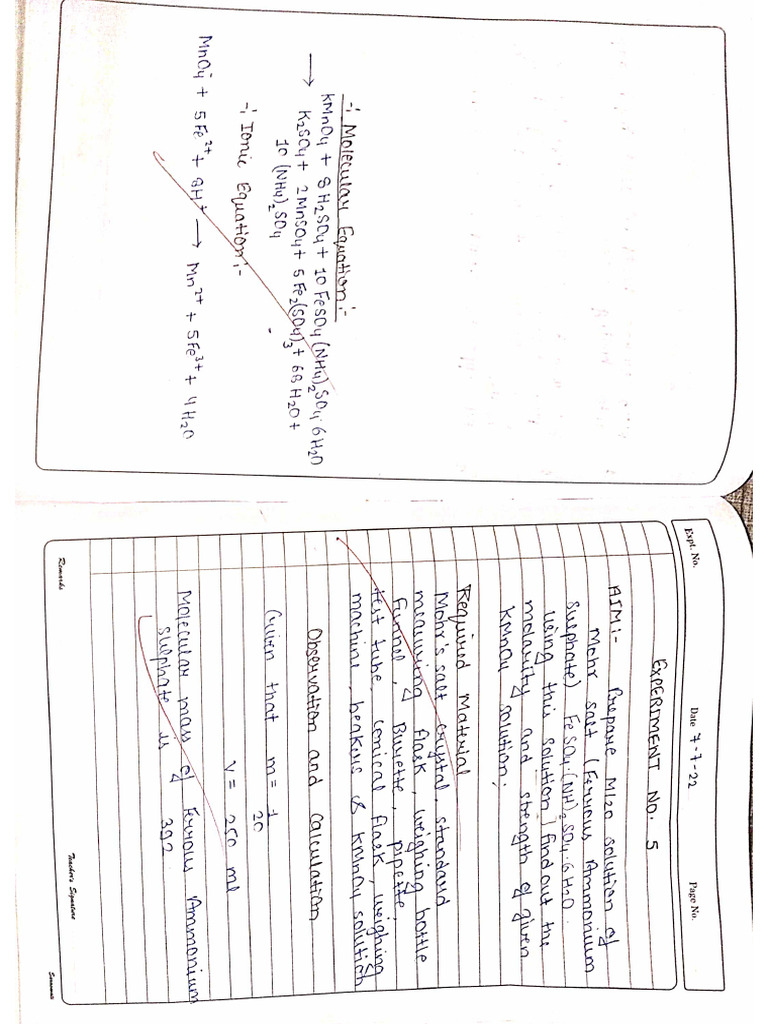 -: Molecular Equation:-
KMnO4 + 8H2SO4 + 10 FeSO4 (NH4)2SO4·6H2O
→ K2SO4 + 2MnSO4 + 5Fe2(SO4)3 + 68H2O +
10 (NH4)2SO4
-: Ionic Equation:-
MnO4- + 5Fe2+ + 8H+ → Mn2+ + 5Fe3+ + 4H2O
Expt. No.
Date 7-7-22
Page No.
EXPERIMENT NO. 5
AIM:- Prepare M/20 solution of
Mohr salt (Ferrous Ammonium
Sulphate) FeSO4·(NH)2SO4·6H2O.
using this solution find out the
molarity and strength of given
KMnO4 solution;
Required Material
Mohr's salt crystal, standard
measuring flask, weighing bottle
Funnel, & Burette, pipette,
test tube, conical flask, weighing
machine, beakers & KMnO4 solution
Observation and calculation
Given that m = 1/20
V = 250 ml
Molecular mass of Ferrous Ammonium
sulphate is 392
Remarks
Teacher's Signature